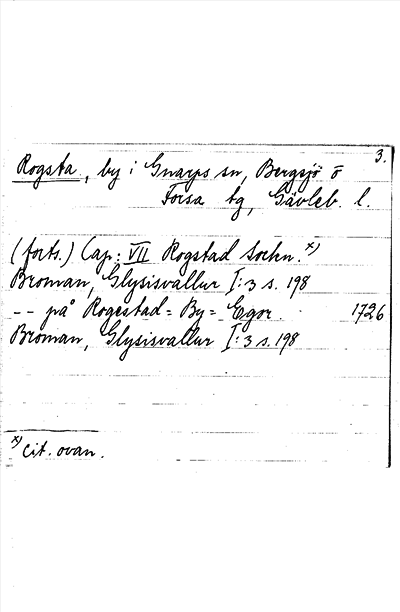 3.
Rogsta, by i Gnarps sn, Bergsjö o
Forsa tg, Gävleb. l.
(forts.) Cap: VII Rogstad Sochn. x)
Broman, Glysisvallur I:3 s. 198
-- på Rogestad=By= Egor. 1726
Broman, Glysisvallur I:3 s. 198
x) Cit. ovan.